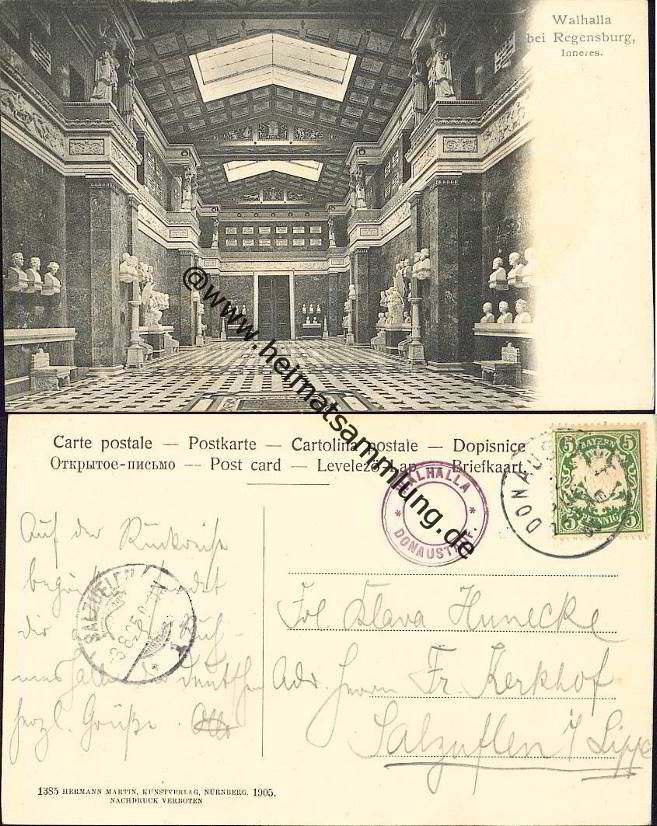 Walhalla
bei Regensburg,
Inneres.
@www.heimatsammlung.de
Carte postale — Postkarte — Cartolina postale — Dopisnice
Открытое-письмо — Post card — Levelező-Lap — Briefkaart
WALHALLA
* DONAUSTAUF. *
DONAUS
BAYERN
5 5
PFENNIG
5 5
Auf der Rückreise
begriffen sendet
dir aus der Ruh-
meshalle der Deutschen
herzl. Grüße. Otto
SALZUFLEN
Frl. Klara Hunecke
Adr. Herrn Fr. Kerkhof
Salzuflen i/Lippe
1385 HERMANN MARTIN, KUNSTVERLAG, NÜRNBERG. 1905.
NACHDRUCK VERBOTEN